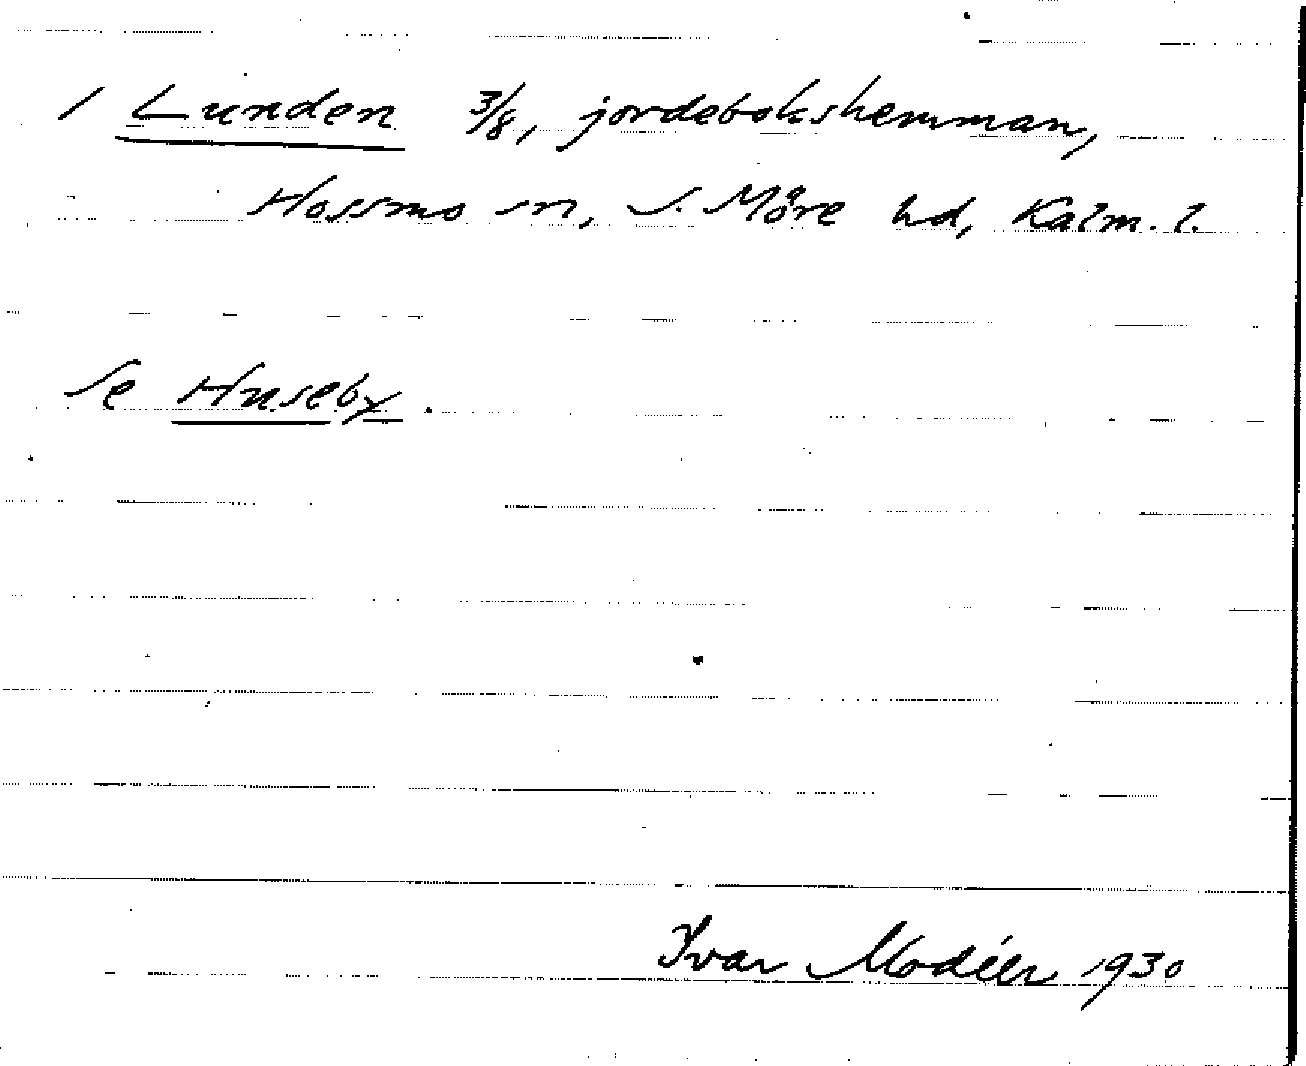 / Lunden 3/8, jordebokshemman,
Hossmo sn, S. Möre hd, Kalm. l.
Se Huseby.
Ivar Modéer 1930